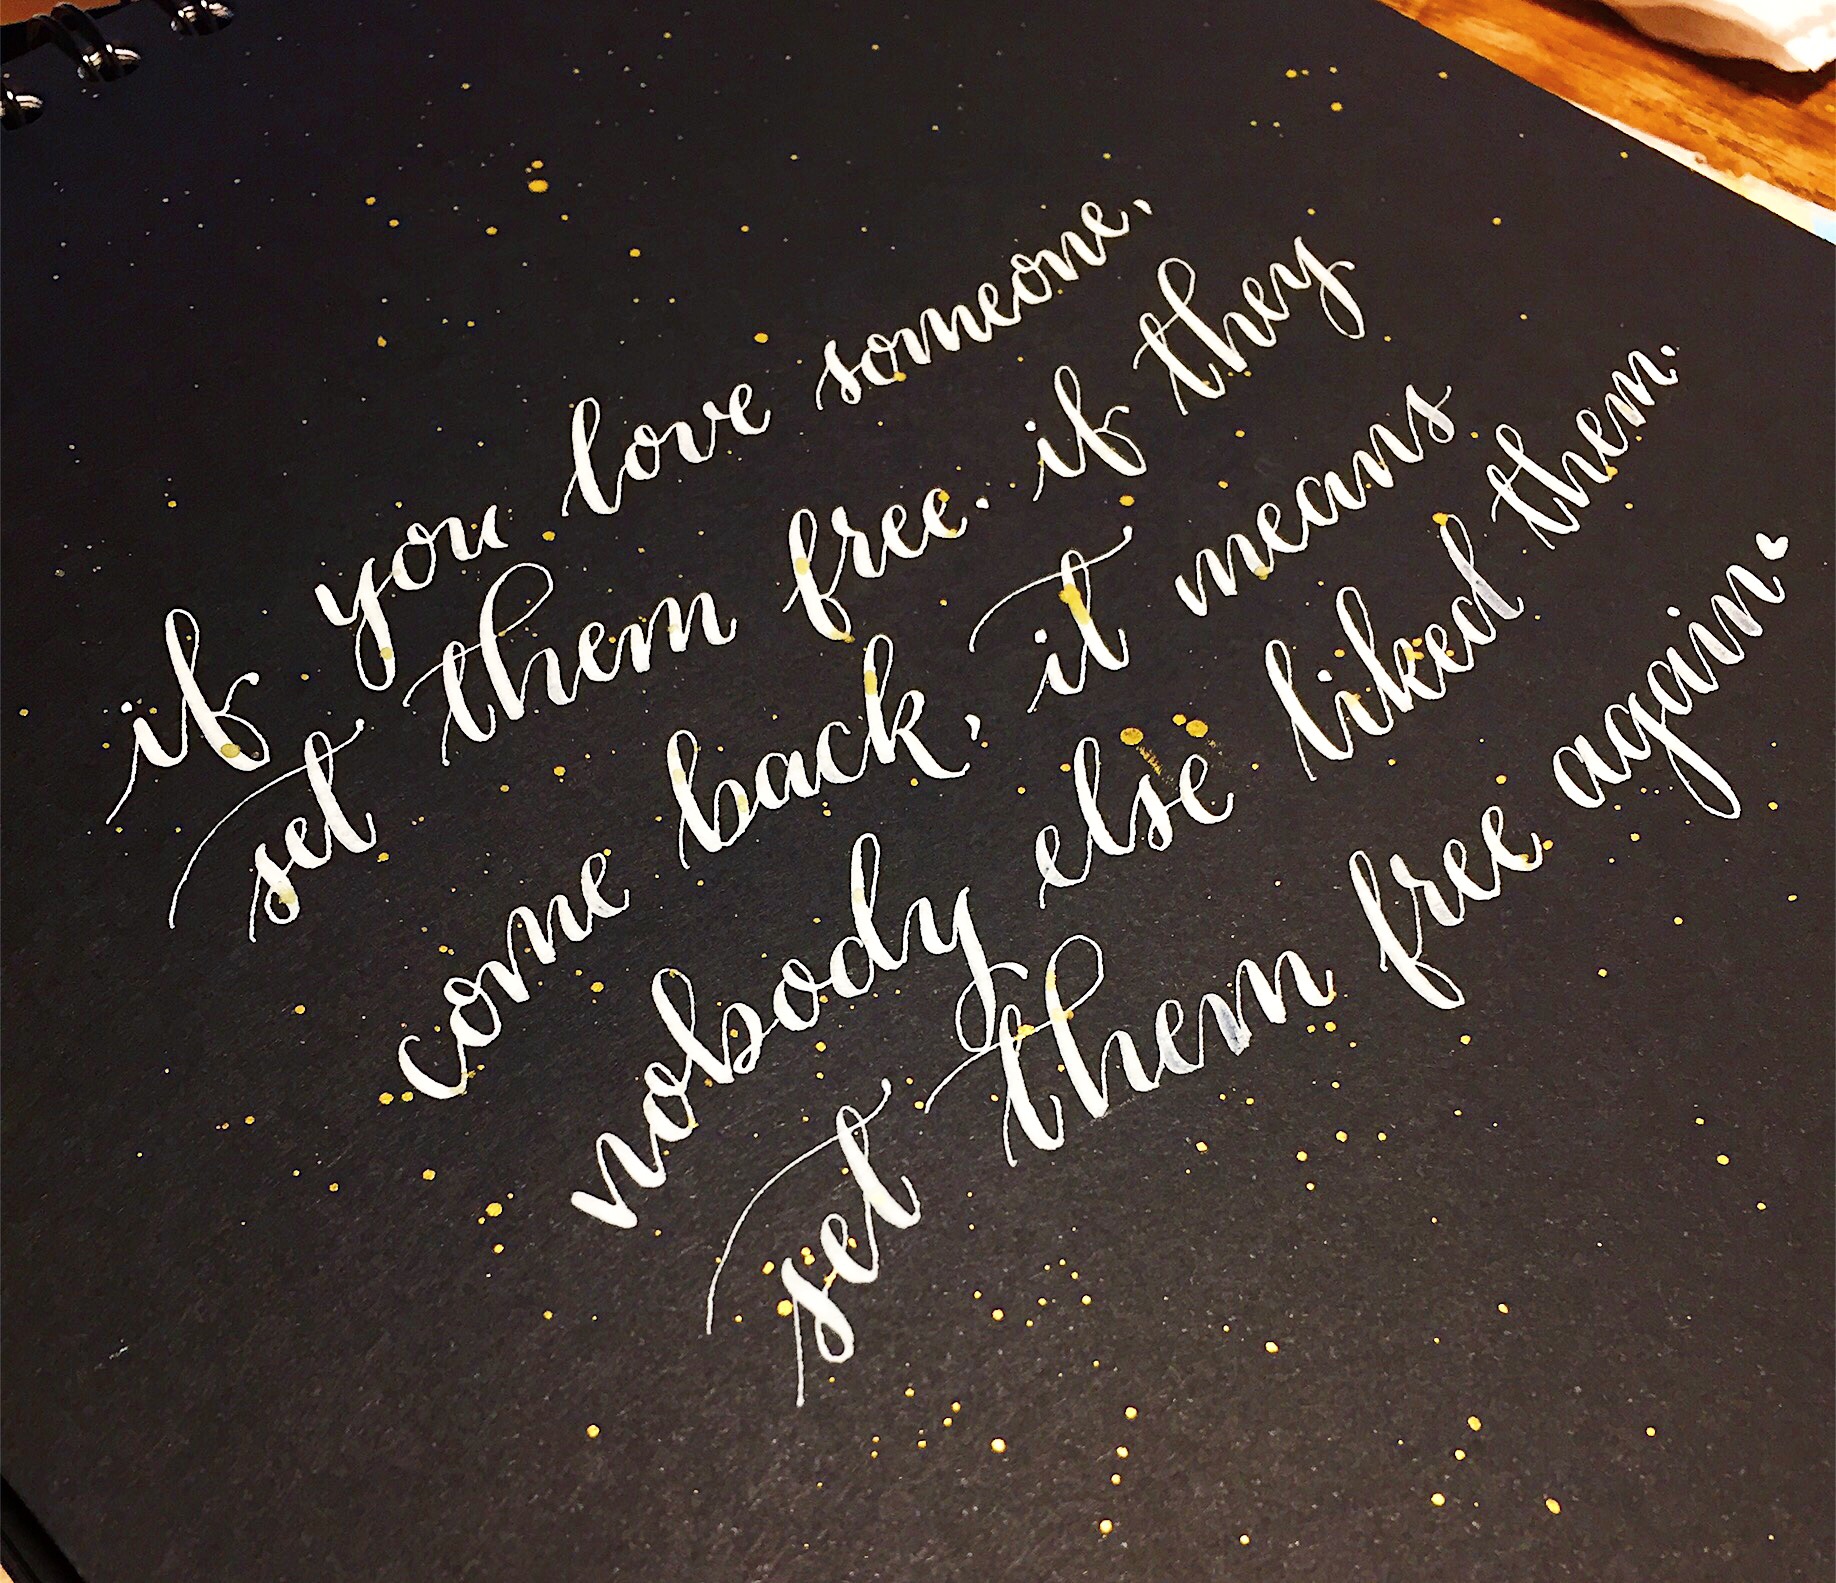 if you love someone,
set them free. if they
come back, it means
nobody else liked them.
set them free again